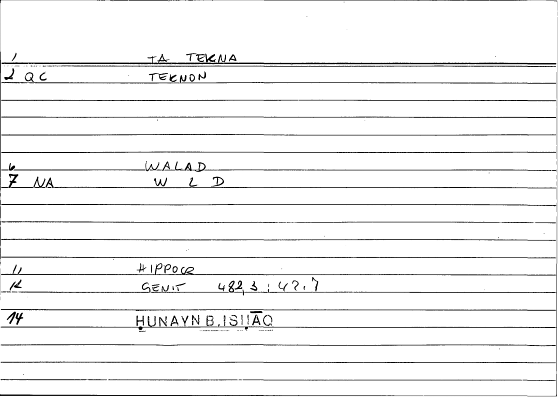 1 TA TEKNA
2 QC TEKNON
6 WALAD
7 NA W L D
11 HIPPOCR
12 GENIT 482,3 : 47.7
14 ḤUNAYN B. ISḤĀQ